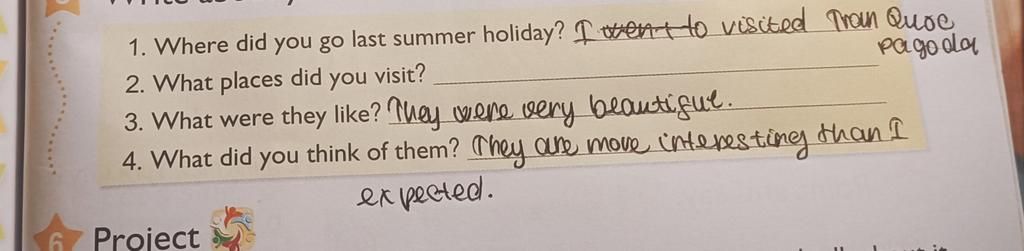 1. Where did you go last summer holiday? I went to visited Tran Quoc
pagoda
2. What places did you visit?
3. What were they like? They were very beautiful.
4. What did you think of them? They are more interesting than I
expected.
6 Project